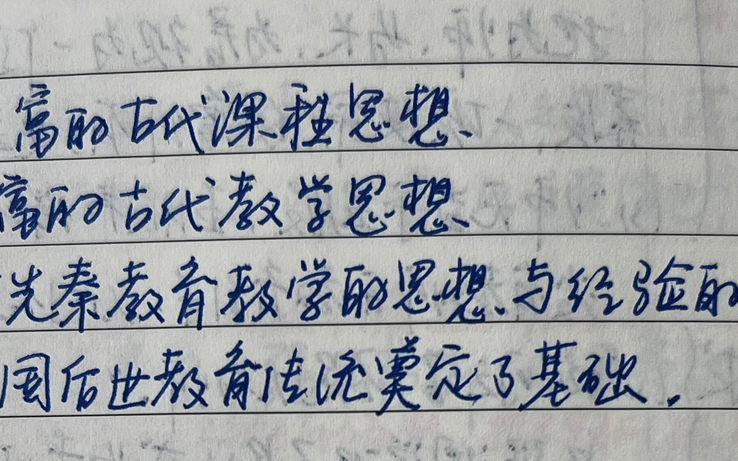 富的古代课程思想、
富的古代教学思想、
先秦教育教学的思想与经验的
国后世教育传统奠定了基础。